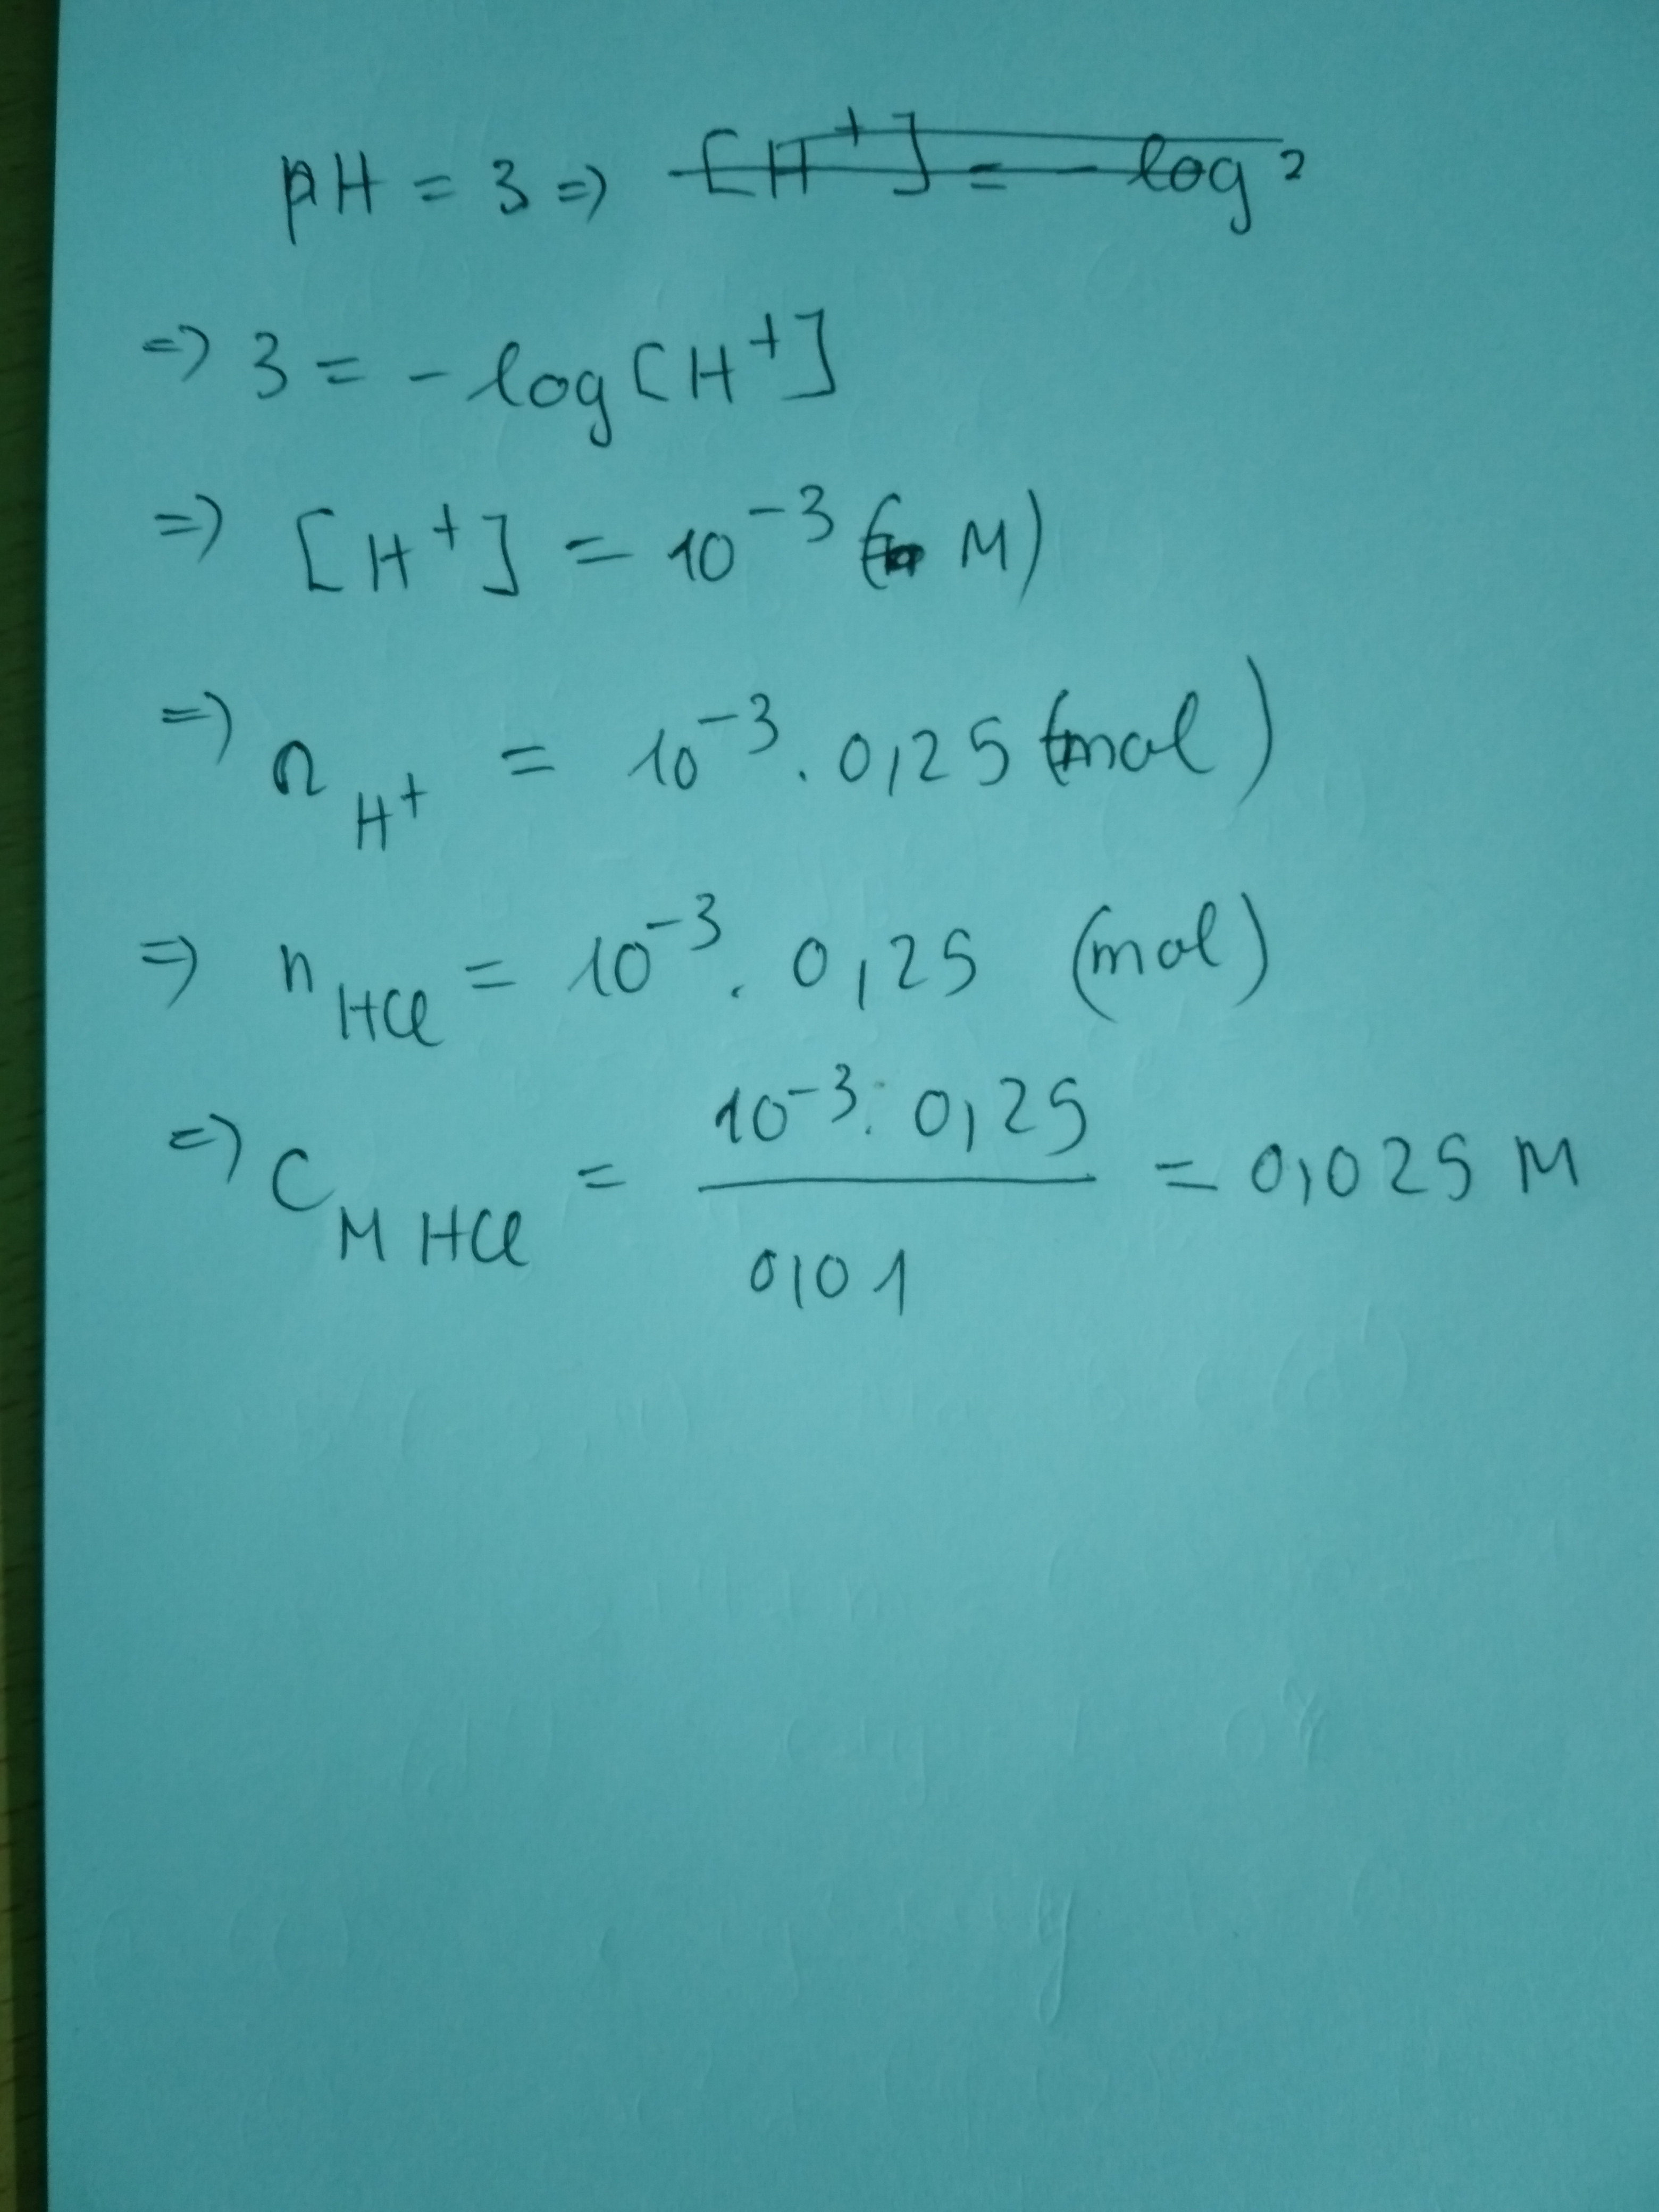 pH = 3 => [H⁺] = - log
=> 3 = - log [H⁺]
=> [H⁺] = 10⁻³ (M)
=> n H⁺ = 10⁻³ . 0,25 (mol)
=> n HCl = 10⁻³ . 0,25 (mol)
=> C M HCl = 10⁻³ . 0,25 / 0,01 = 0,025 M